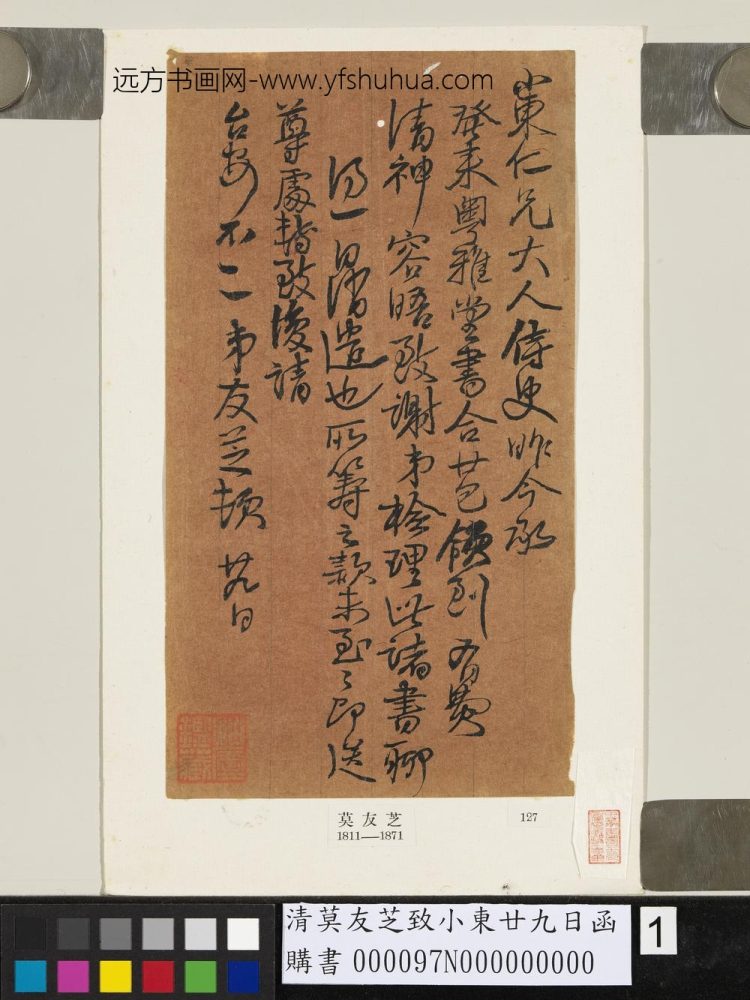 远方书画网-www.yfshuhua.com
小東仁兄大人侍史昨今承
發來粵雅堂書合廿包領到有費
清神容晤致謝弟檢理此諸書聊
得一日消遣也所籌之款未至々即送
尊處轉致復請
台安不一弟友芝頓廿九日
莫友芝
1811—1871
127
清莫友芝致小東廿九日函
購書 000097N000000000
1